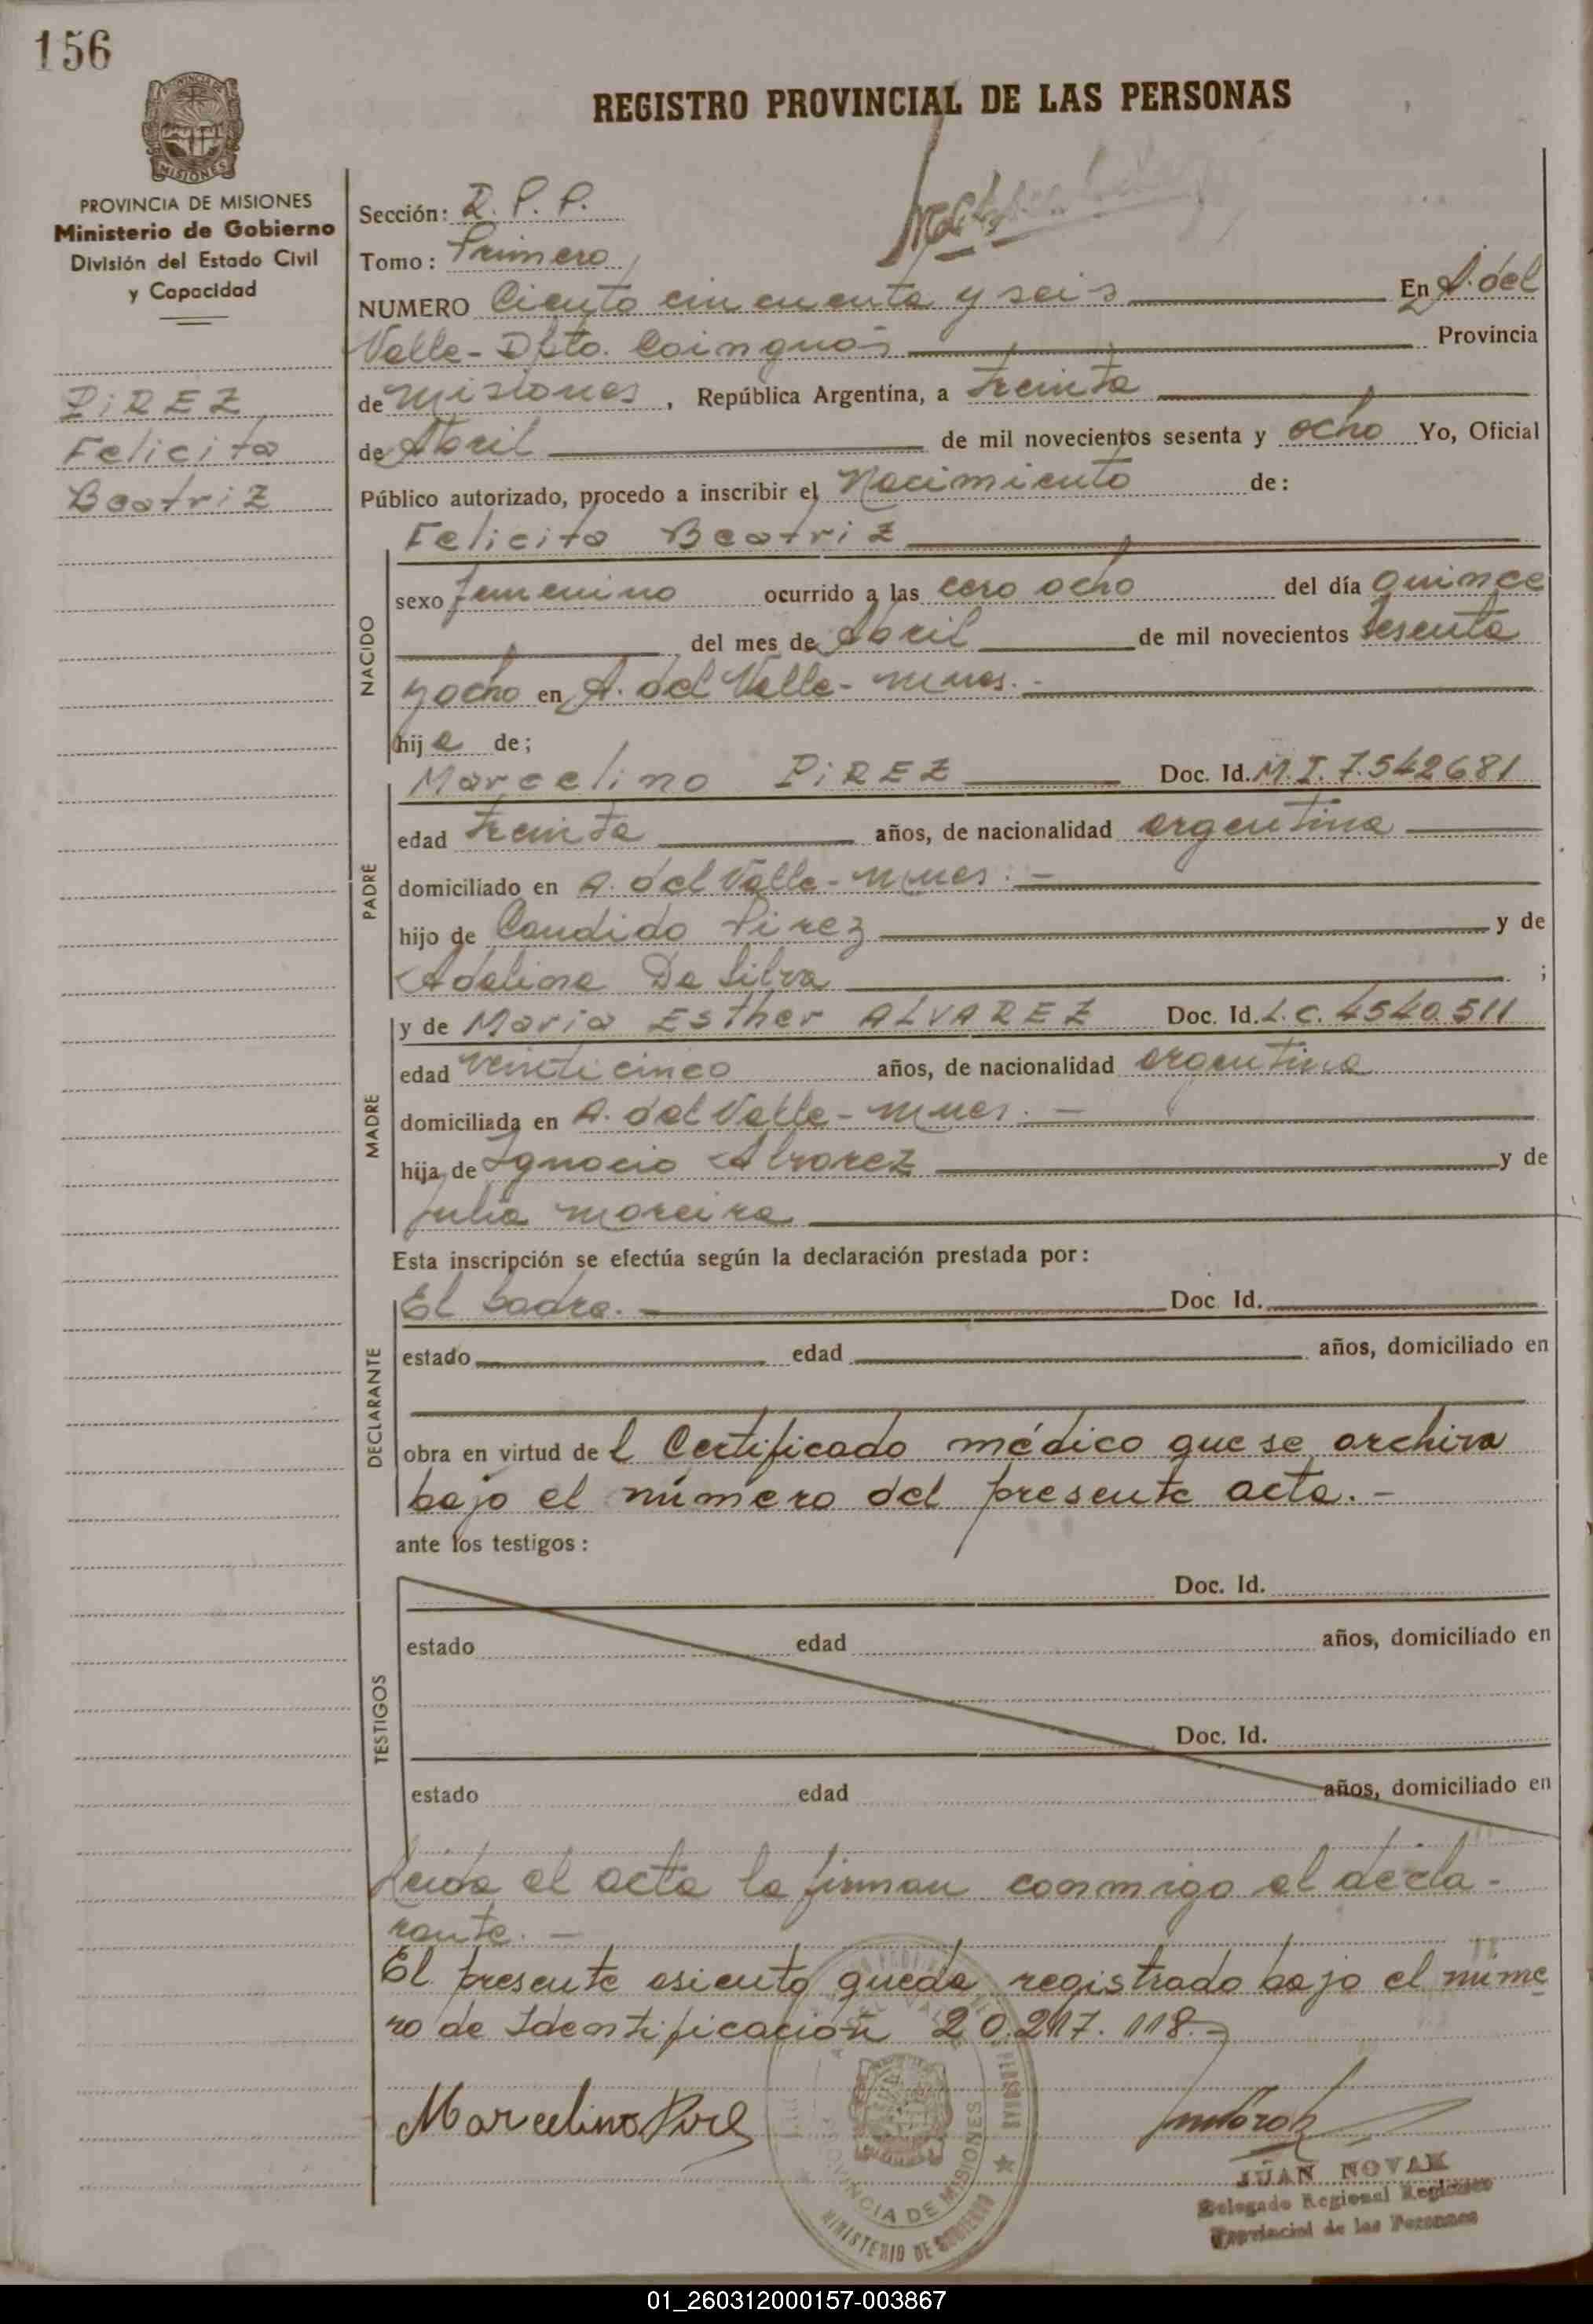 156
REGISTRO PROVINCIAL DE LAS PERSONAS
MISIONES
PROVINCIA DE MISIONES
Ministerio de Gobierno
División del Estado Civil
y Capacidad
PIREZ
Felicita
Beatriz
Sección: R. P. P.
Tomo: Primero
NUMERO Ciento cincuenta y seis En A. del
Valle - Dpto. Cainguás Provincia
de Misiones, República Argentina, a treinta
de Abril de mil novecientos sesenta y ocho Yo, Oficial
Público autorizado, procedo a inscribir el Nacimiento de:
Felicita Beatriz
NACIDO
sexo femenino ocurrido a las cero ocho del día quince
del mes de Abril de mil novecientos sesenta
y ocho en A. del Valle - Mnes. -
hija de;
PADRE
Marcelino PIREZ Doc. Id. M.I. 7.542681
edad treinta años, de nacionalidad argentina
domiciliado en A. del Valle - Mnes. -
hijo de Candido Pirez y de
Adelina Da Silva ;
MADRE
y de Maria Esther ALVAREZ Doc. Id. L.C. 4540.511
edad veinticinco años, de nacionalidad argentina
domiciliada en A. del Valle - Mnes. -
hija de Ignacio Alvarez y de
Julia Moreira
Esta inscripción se efectúa según la declaración prestada por:
DECLARANTE
El padre. Doc. Id.
estado edad años, domiciliado en
obra en virtud del Certificado médico que se archiva
bajo el número del presente acta. -
ante los testigos:
TESTIGOS
Doc. Id.
estado edad años, domiciliado en
Doc. Id.
estado edad años, domiciliado en
Leida el acta la firman conmigo el decla-
rante. -
El presente asiento queda registrado bajo el núme
ro de Identificación 20.217.118. -
Marcelino Pirez
PROVINCIA DE MISIONES
MINISTERIO DE GOBIERNO
JUAN NOVAK
Delegado Regional Registro
Provincial de las Personas
01_260312000157-003867